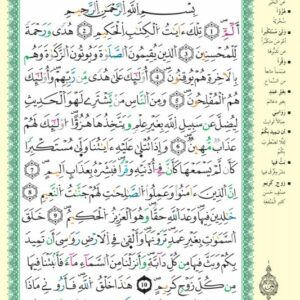 بِسْمِ اللَّهِ الرَّحْمَٰنِ الرَّحِيمِ
الٓمٓ ۝١ تِلْكَ ءَايَٰتُ ٱلْكِتَٰبِ ٱلْحَكِيمِ ۝٢ هُدًى وَرَحْمَةً
لِّلْمُحْسِنِينَ ۝٣ ٱلَّذِينَ يُقِيمُونَ ٱلصَّلَوٰةَ وَيُؤْتُونَ ٱلزَّكَوٰةَ وَهُم
بِٱلْءَاخِرَةِ هُمْ يُوقِنُونَ ۝٤ أُو۟لَٰٓئِكَ عَلَىٰ هُدًى مِّن رَّبِّهِمْ وَأُو۟لَٰٓئِكَ
هُمُ ٱلْمُفْلِحُونَ ۝٥ وَمِنَ ٱلنَّاسِ مَن يَشْتَرِى لَهْوَ ٱلْحَدِيثِ
لِيُضِلَّ عَن سَبِيلِ ٱللَّهِ بِغَيْرِ عِلْمٍ وَيَتَّخِذَهَا هُزُوًا أُو۟لَٰٓئِكَ لَهُمْ
عَذَابٌ مُّهِينٌ ۝٦ وَإِذَا تُتْلَىٰ عَلَيْهِ ءَايَٰتُنَا وَلَّىٰ مُسْتَكْبِرًا
كَأَن لَّمْ يَسْمَعْهَا كَأَنَّ فِىٓ أُذُنَيْهِ وَقْرًا فَبَشِّرْهُ بِعَذَابٍ أَلِيمٍ ۝٧
إِنَّ ٱلَّذِينَ ءَامَنُوا۟ وَعَمِلُوا۟ ٱلصَّٰلِحَٰتِ لَهُمْ جَنَّٰتُ ٱلنَّعِيمِ ۝٨
خَٰلِدِينَ فِيهَا وَعْدَ ٱللَّهِ حَقًّا وَهُوَ ٱلْعَزِيزُ ٱلْحَكِيمُ ۝٩ خَلَقَ
ٱلسَّمَٰوَٰتِ بِغَيْرِ عَمَدٍ تَرَوْنَهَا وَأَلْقَىٰ فِى ٱلْأَرْضِ رَوَٰسِىَ أَن تَمِيدَ
بِكُمْ وَبَثَّ فِيهَا مِن كُلِّ دَآبَّةٍ وَأَنزَلْنَا مِنَ ٱلسَّمَآءِ مَآءً فَأَنۢبَتْنَا فِيهَا
مِن كُلِّ زَوْجٍ كَرِيمٍ ۝١٠ هَٰذَا خَلْقُ ٱللَّهِ فَأَرُونِى مَاذَا